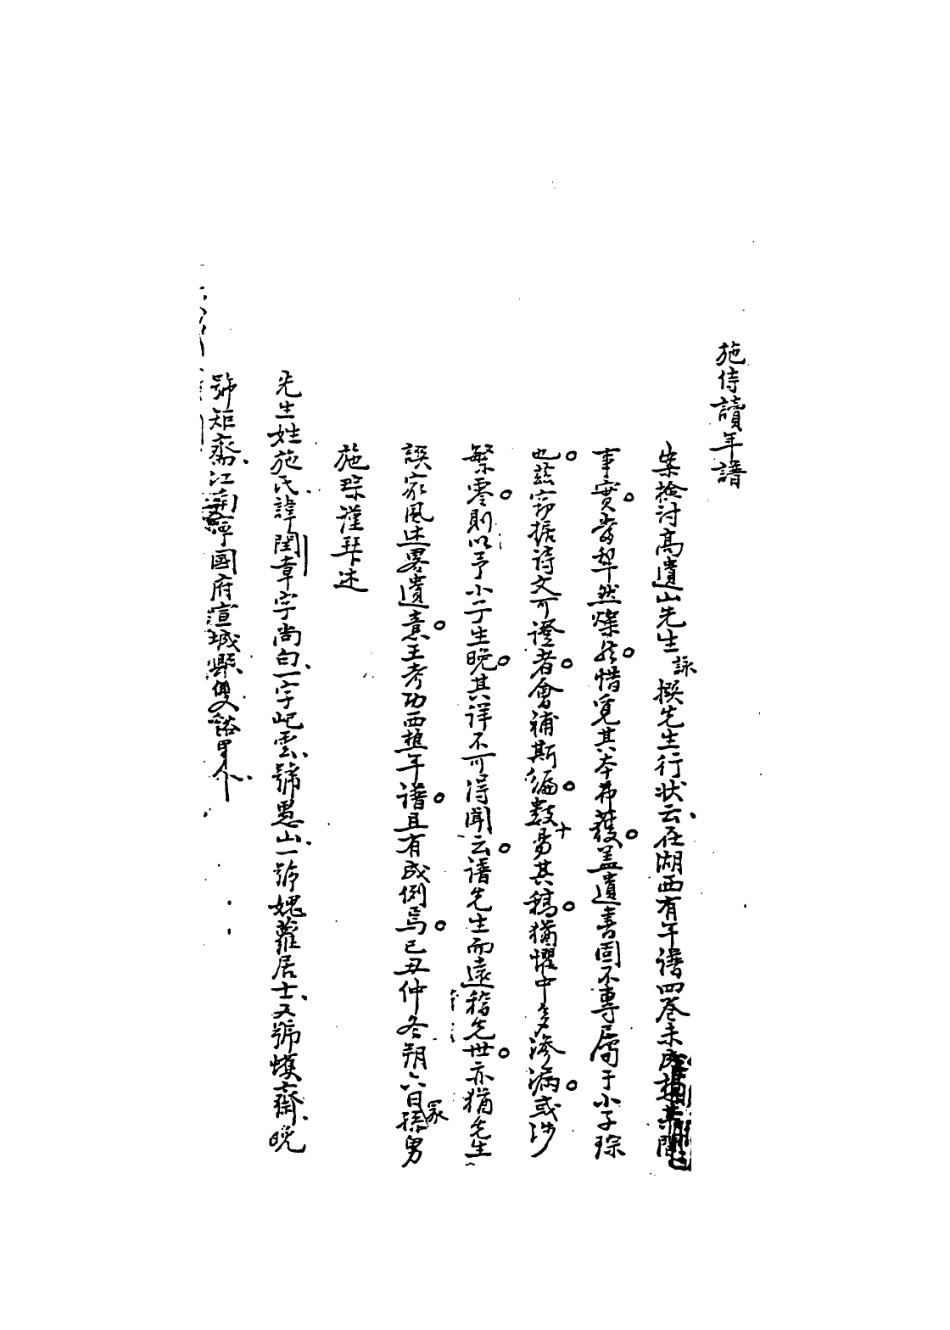 施侍讀年譜
案檢討高遺山先生詠撰先生行狀云在湖西有年譜四卷未成
事實當犁然燦然惜覓其本弗獲蓋遺書固不專屬于小子琮
也茲窃據詩文可證者會補斯編數易其稿猶懼中多滲漏或涉
繁零則以予小子生晚其詳不可得聞云譜先生而遠稽先世亦猶先生
誤家風述畧遺意王考功西樵年譜且有成例焉已丑仲冬朔六日孫男
施琮謹拜述
先生姓施氏諱閏章字尚白一字屺雲號愚山一號媿蘿居士又號蠖齋晚
號矩齋江南寧國府宣城縣雙谿里人